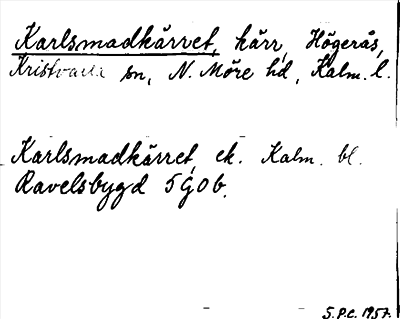 Karlsmadkärret, kärr, Högerås,
Kristvalla sn, N. Möre hd, Kalm. l.
Karlsmadkärret, ek. Kalm. bl.
Ravelsbygd 5G0b.
S.P.C. 1957.